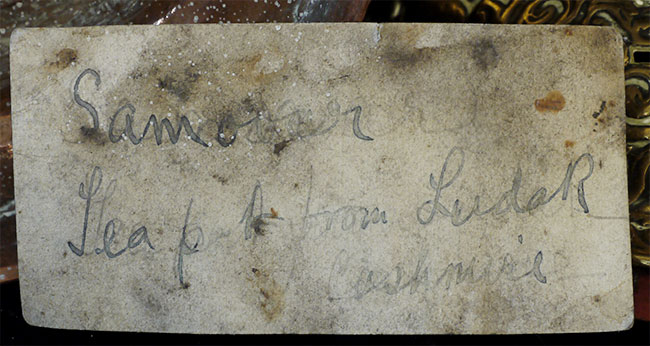 Samovar
Tea pot from Ludak
Cashmire